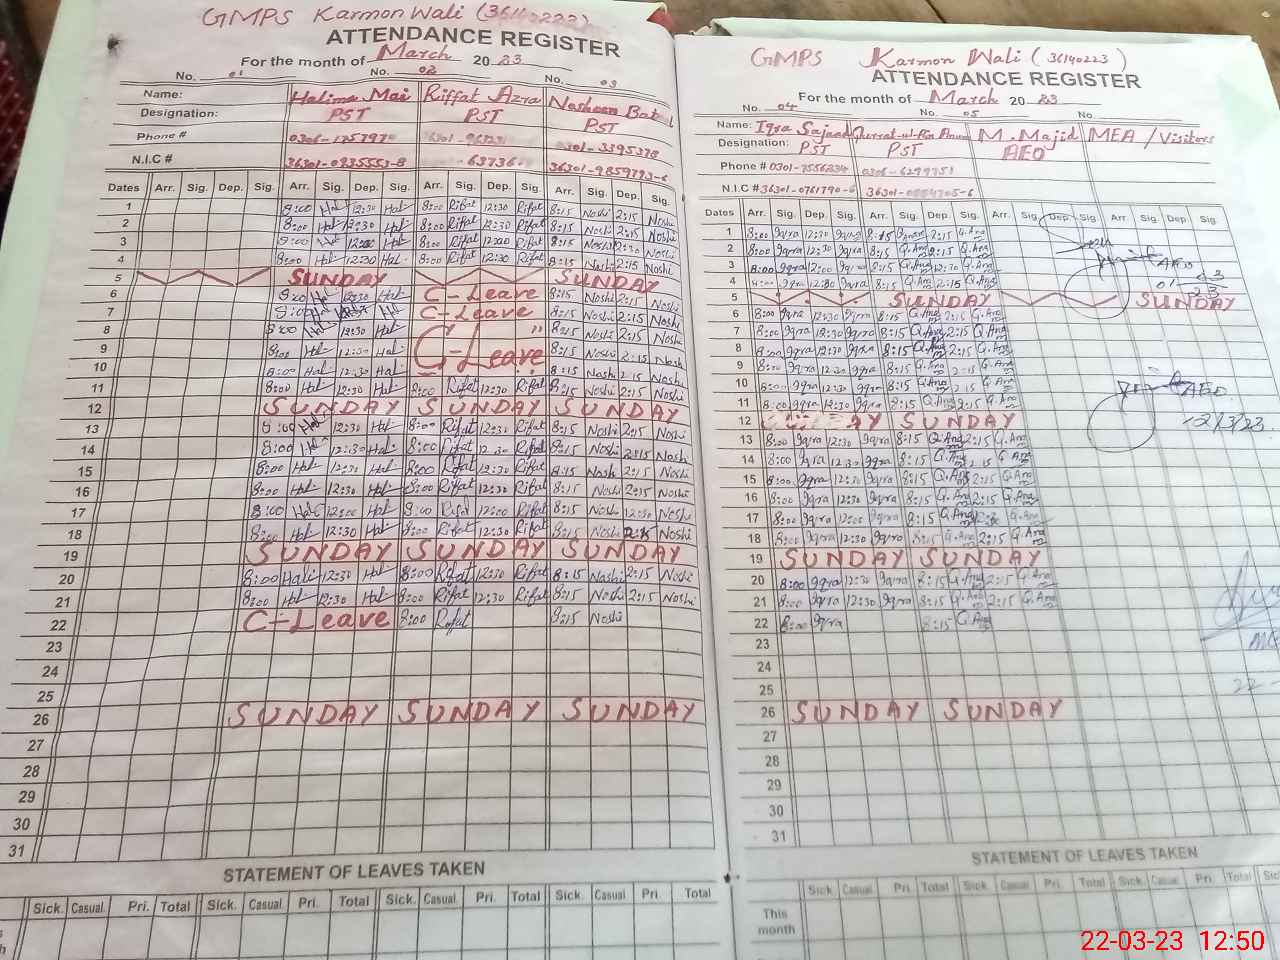 GMPS Karmon Wali (36140223)
ATTENDANCE REGISTER
For the month of March 20 23
No. 01 No. 02 No. 03
Name: Halima Mai Riffat Azra Nosheen Batol
Designation: PST PST PST
Phone #
N.I.C # 36301-0235553-8 36301-9859793-6
Dates Arr. Sig. Dep. Sig. Arr. Sig. Dep. Sig. Arr. Sig. Dep. Sig. Arr. Sig. Dep. Sig.
1 8:00 Hal 12:30 Hal 8:00 Rifat 12:30 Rifat 8:15 Noshi 2:15 Noshi
2 8:00 Hal 12:30 Hal 8:00 Rifat 12:30 Rifat 8:15 Noshi 2:15 Noshi
3 8:00 Hal Hal 8:00 Rifat Rifat 8:15 Noshi Noshi
4 8:00 Hal 12:30 Hal 8:00 Rifat 12:30 Rifat 8:15 Noshi 2:15 Noshi
5 SUNDAY SUNDAY
6 8:00 Hal 12:30 Hal C-Leave 8:15 Noshi 2:15 Noshi
7 8:00 Hal Hal C-Leave 8:15 Noshi 2:15 Noshi
8 8:00 Hal 12:30 Hal C- " 8:15 Noshi 2:15 Noshi
9 8:00 Hal 12:30 Hal C-Leave 8:15 Noshi 2:15 Noshi
10 8:00 Hal 12:30 Hal 8:15 Noshi 2:15 Noshi
11 8:00 Hal 12:30 Hal 8:00 Rifat 12:30 Rifat 8:15 Noshi 2:15 Noshi
12 SUNDAY SUNDAY SUNDAY
13 8:00 Hal 12:30 Hal 8:00 Rifat 12:30 Rifat 8:15 Noshi 2:15 Noshi
14 8:00 Hal 12:30 Hal 8:00 Rifat 12:30 Rifat 8:15 Noshi 2:15 Noshi
15 8:00 Hal 12:30 Hal 8:00 Rifat 12:30 Rifat 8:15 Noshi 2:15 Noshi
16 8:00 Hal 12:30 Hal 8:00 Rifat 12:30 Rifat 8:15 Noshi 2:15 Noshi
17 8:00 Hal 12:00 Hal 8:00 Rifat 12:00 Rifat 8:15 Noshi 12:30 Noshi
18 8:00 Hal 12:30 Hal 8:00 Rifat 12:30 Rifat 8:15 Noshi 2:15 Noshi
19 SUNDAY SUNDAY SUNDAY
20 8:00 Hali 12:30 Hal 8:00 Rifat 12:30 Rifat 8:15 Noshi 2:15 Noshi
21 8:00 Hal 12:30 Hal 8:00 Rifat 12:30 Rifat 8:15 Noshi 2:15 Noshi
22 C-Leave 8:00 Rifat 8:15 Noshi
23
24
25
26 SUNDAY SUNDAY SUNDAY
27
28
29
30
31
STATEMENT OF LEAVES TAKEN
Sick. Casual. Pri. Total Sick. Casual. Pri. Total Sick. Casual. Pri. Total Sick. Casual. Pri. Total
GMPS Karmon Wali (36140223)
ATTENDANCE REGISTER
For the month of March 20 23
No. 04 No. 05 No.
Name: Iqra Sajaad M. Majid MEA / Visitors
Designation: PST PST AEO
Phone # 0306-6299751
N.I.C # 36301-0761790-6
Dates Arr. Sig. Dep. Sig. Arr. Sig. Dep. Sig. Arr. Sig. Dep. Sig. Arr. Sig. Dep. Sig.
1 8:00 Iqra 12:30 Iqra 8:15 2:15 Q.Ana
2 8:00 Iqra 12:30 Iqra 8:15 Q.Ana 2:15 Q.Ana
3 8:00 Iqra 12:00 Iqra 8:15 Q.Ana 12:30 Q.Ana AEO
4 8:00 Iqra 12:30 Iqra 8:15 Q.Ana 2:15 Q.Ana
5 SUNDAY SUNDAY
6 8:00 Iqra 12:30 Iqra 8:15 Q.Ana 2:15 Q.Ana
7 8:00 Iqra 12:30 Iqra 8:15 Q.Ana 2:15 Q.Ana
8 8:00 Iqra 12:30 Iqra 8:15 Q.Ana 2:15 Q.Ana
9 8:00 Iqra 12:30 Iqra 8:15 Q.Ana 2:15 Q.Ana
10 8:00 Iqra 12:30 Iqra 8:15 Q.Ana 2:15 Q.Ana
11 8:00 Iqra 12:30 Iqra 8:15 Q.Ana 2:15 Q.Ana AEO
12 SUNDAY SUNDAY 12/3/23
13 8:00 Iqra 12:30 Iqra 8:15 Q.Ana 2:15 Q.Ana
14 8:00 Iqra 12:30 Iqra 8:15 Q.Ana 2:15 Q.Ana
15 8:00 Iqra 12:30 Iqra 8:15 Q.Ana 2:15 Q.Ana
16 8:00 Iqra 12:30 Iqra 8:15 Q.Ana 2:15 Q.Ana
17 8:00 Iqra 12:00 Iqra 8:15 Q.Ana 12:30 Q.Ana
18 8:00 Iqra 12:30 Iqra 8:15 Q.Ana 2:15 Q.Ana
19 SUNDAY SUNDAY
20 8:00 Iqra 12:30 Iqra 8:15 Q.Ana 2:15 Q.Ana
21 8:00 Iqra 12:30 Iqra 8:15 Q.Ana 2:15 Q.Ana
22 8:00 Iqra 8:15 Q.Ana
23
24
25
26 SUNDAY SUNDAY
27
28
29
30
31
STATEMENT OF LEAVES TAKEN
Sick. Casual. Pri. Total Sick. Casual. Pri. Total Sick. Casual. Pri. Total Sick.
This month
22-03-23 12:50